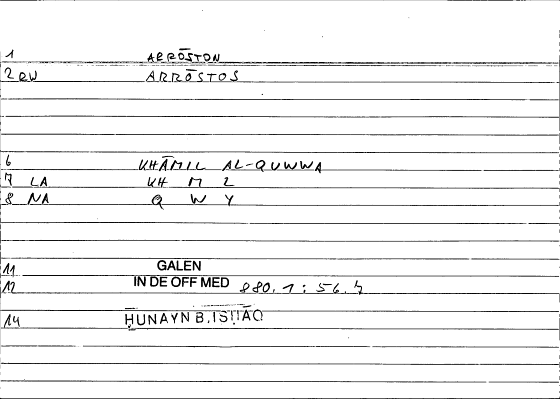 1 ARRŌSTON
2 QW ARRŌSTOS
6 KHĀMIL AL-QUWWA
7 LA KH M L
8 NA Q W Y
11 GALEN
12 IN DE OFF MED 880.1: 56.4
14 ḤUNAYN B. ISḤĀQ